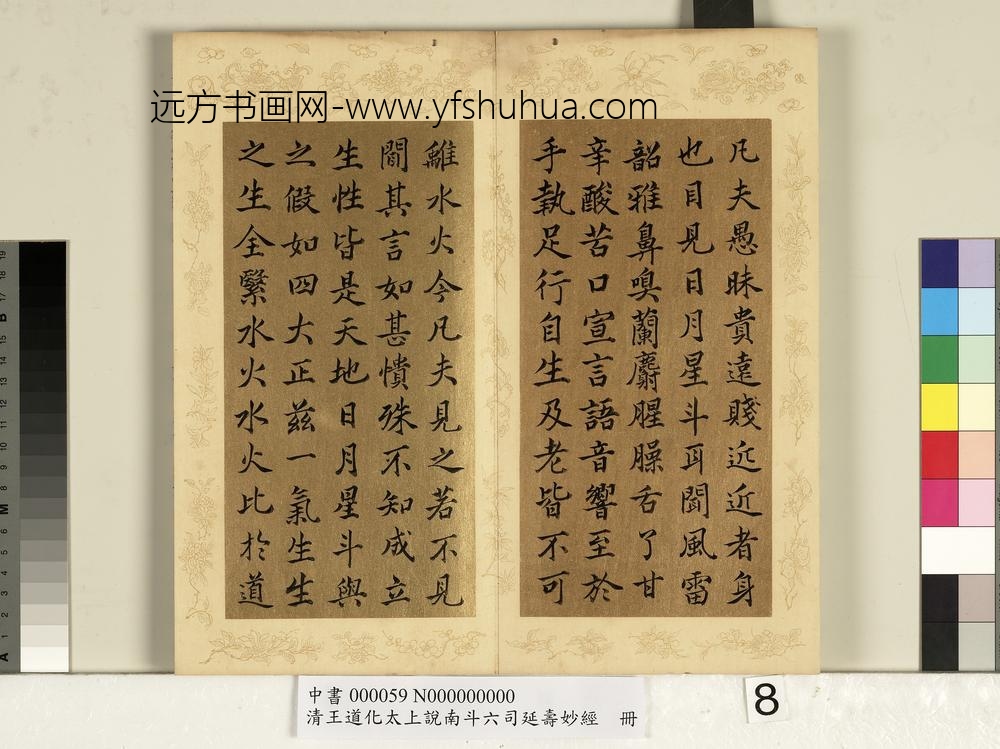 远方书画网-www.yfshuhua.com
凡夫愚昧貴遠賤近近者身
也目見日月星斗耳聞風雷
韶雅鼻嗅蘭麝腥臊舌了甘
辛酸苦口宣言語音響至於
手執足行自生及老皆不可
離水火今凡夫見之若不見
聞其言如甚憒殊不知成立
生性皆是天地日月星斗與
之假如四大正茲一氣生生
之生全繄水火水火比於道
中書 000059 N000000000
清王道化太上說南斗六司延壽妙經 冊
8